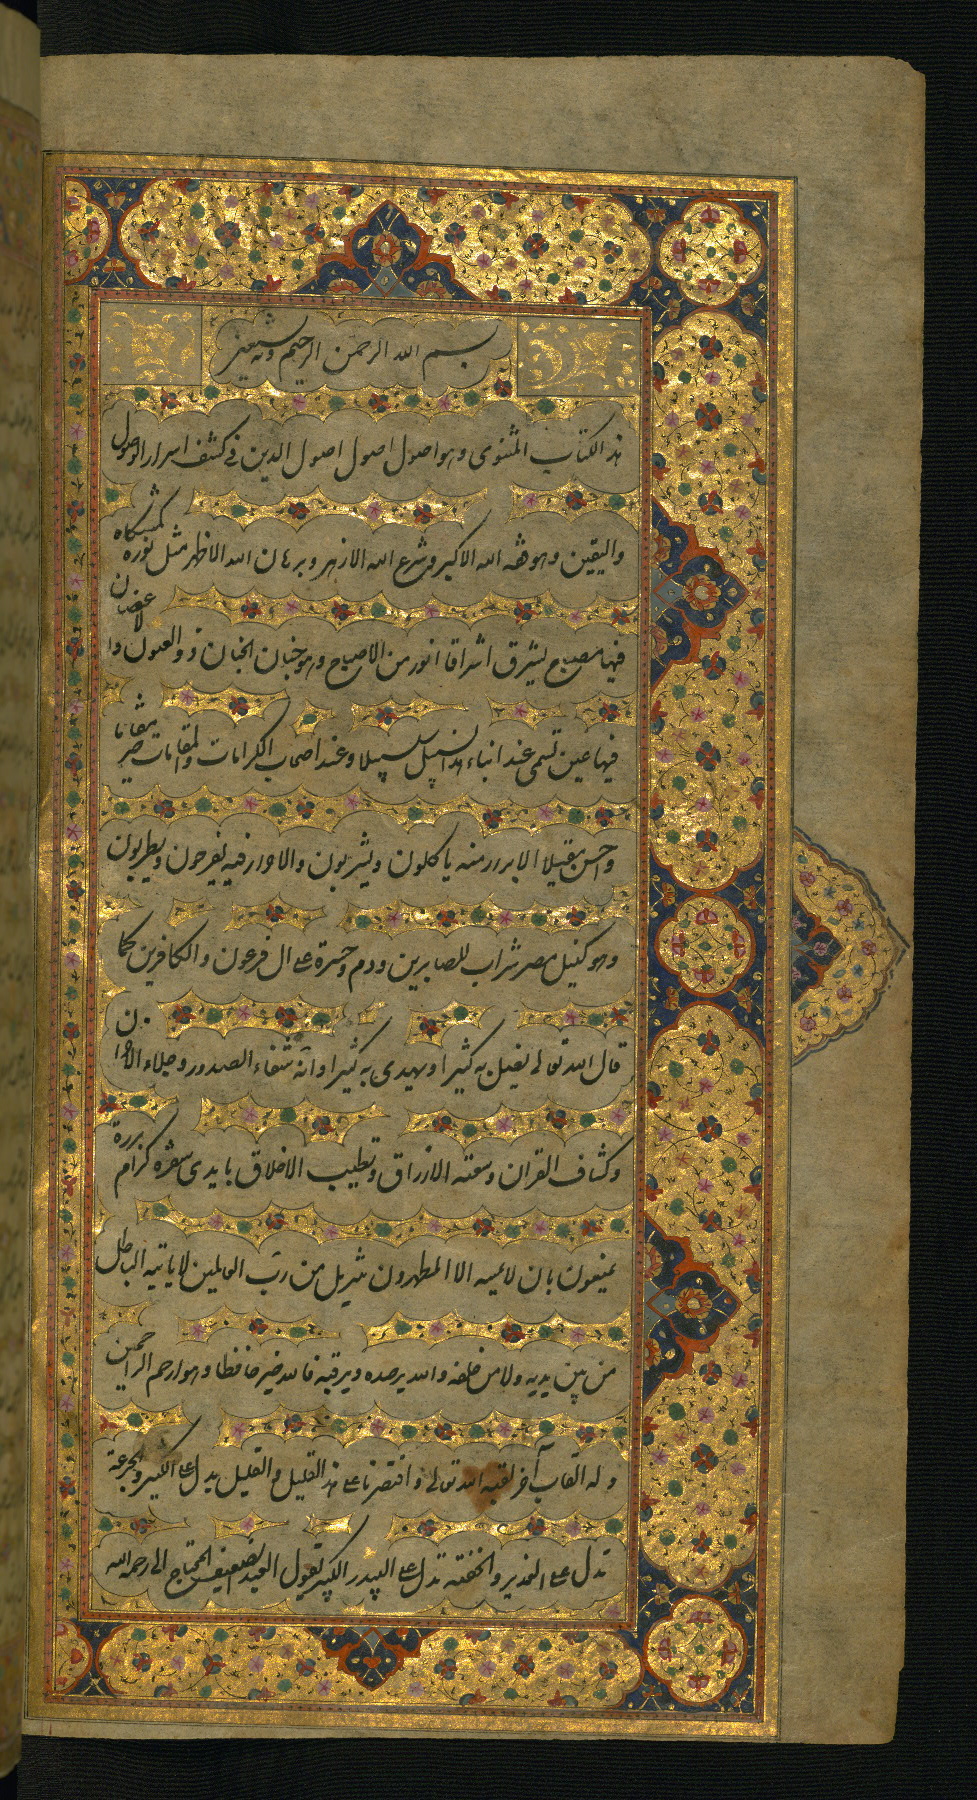 بسم الله الرحمن الرحيم وبه نستعين
هذا الكتاب المثنوى وهو اصول اصول اصول الدين فى كشف اسرار الوصول
واليقين وهو فقه الله الاكبر وشرع الله الازهر وبرهان الله الاظهر مثل نوره كمشكاة
فيها مصباح يشرق اشراقا انور من الاصباح وهو جنان الجنان ذو العيون والاغصان
فيها عين تسمى عند ابناء هذا السبيل سلسبيلا وعند اصحاب الكرامات والمقامات خير مقاما
واحسن مقيلا الابرار منه ياكلون ويشربون والاحرار فيه يفرحون ويطربون
وهو كنيل مصر شراب للصابرين ودم وحسرة على ال فرعون والكافرين كما
قال الله تعالى يضل به كثيرا ويهدى به كثيرا وانه شفاء الصدور وجلاء الاحزان
وكشاف القران وسعة الارزاق وتطييب الاخلاق بايدى سفرة كرام بررة
يمنعون بان لا يمسه الا المطهرون تنزيل من رب العالمين لا ياتيه الباطل
من بين يديه ولا من خلفه والله يرصده ويرقبه فالله خير حافظا وهو ارحم الراحمين
وله القاب آخر لقبه الله تعالى واقتصرنا على هذا القليل والقليل يدل على الكثير والجرعة
تدل على الغدير والحفنة تدل على البيدر الكبير يقول العبد الضعيف المحتاج الى رحمة الله